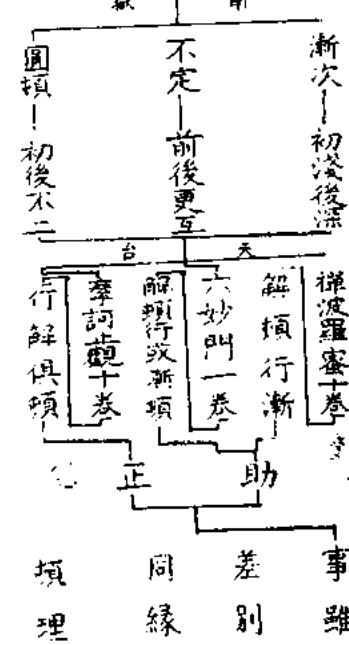 漸次 初淺後深
不定 前後更互
圓頓 初後不二
天台
禪波羅蜜十卷
解頓行漸
六妙門一卷
解頓行或漸頓
摩訶止觀十卷
行解俱頓
助
正
事雖
差別
同緣
頓理